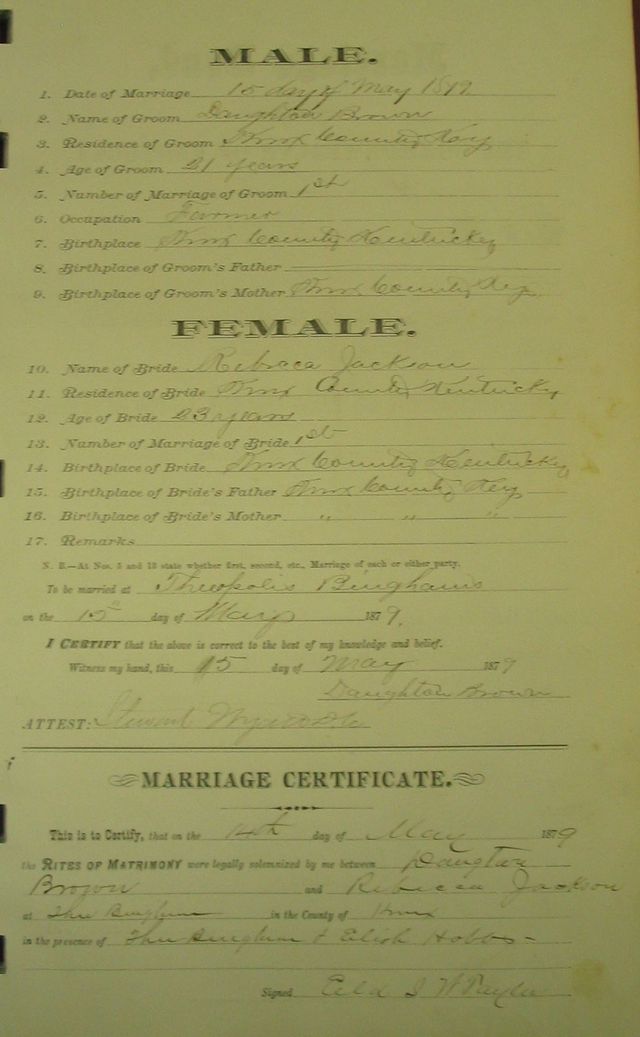 MALE.
1. Date of Marriage 15 day of May 1879
2. Name of Groom Daughton Brown
3. Residence of Groom Knox County Key
4. Age of Groom 21 years
5. Number of Marriage of Groom 1st
6. Occupation Farmer
7. Birthplace Knox County Kentuckey
8. Birthplace of Groom's Father
9. Birthplace of Groom's Mother Knox County Key
FEMALE.
10. Name of Bride Rebecca Jackson
11. Residence of Bride Knox County Kentuckey
12. Age of Bride 23 years
13. Number of Marriage of Bride 1st
14. Birthplace of Bride Knox County Kentuckey
15. Birthplace of Bride's Father Knox County Key
16. Birthplace of Bride's Mother " " "
17. Remarks
N. B.—At Nos. 5 and 13 state whether first, second, etc., Marriage of each or either party.
To be married at Theopolis Binghams
on the 15" day of May 1879.
I CERTIFY that the above is correct to the best of my knowledge and belief.
Witness my hand, this 15 day of May 1879
Daughton Brown
ATTEST: Stewart
MARRIAGE CERTIFICATE.
This is to Certify, that on the day of May 1879
the RITES OF MATRIMONY were legally solemnized by me between Daugton
Brown and Rebecca Jackson
at Theo Bingham in the County of Knox
in the presence of Theo Bingham & Elish Hobbs
Signed Eld J W